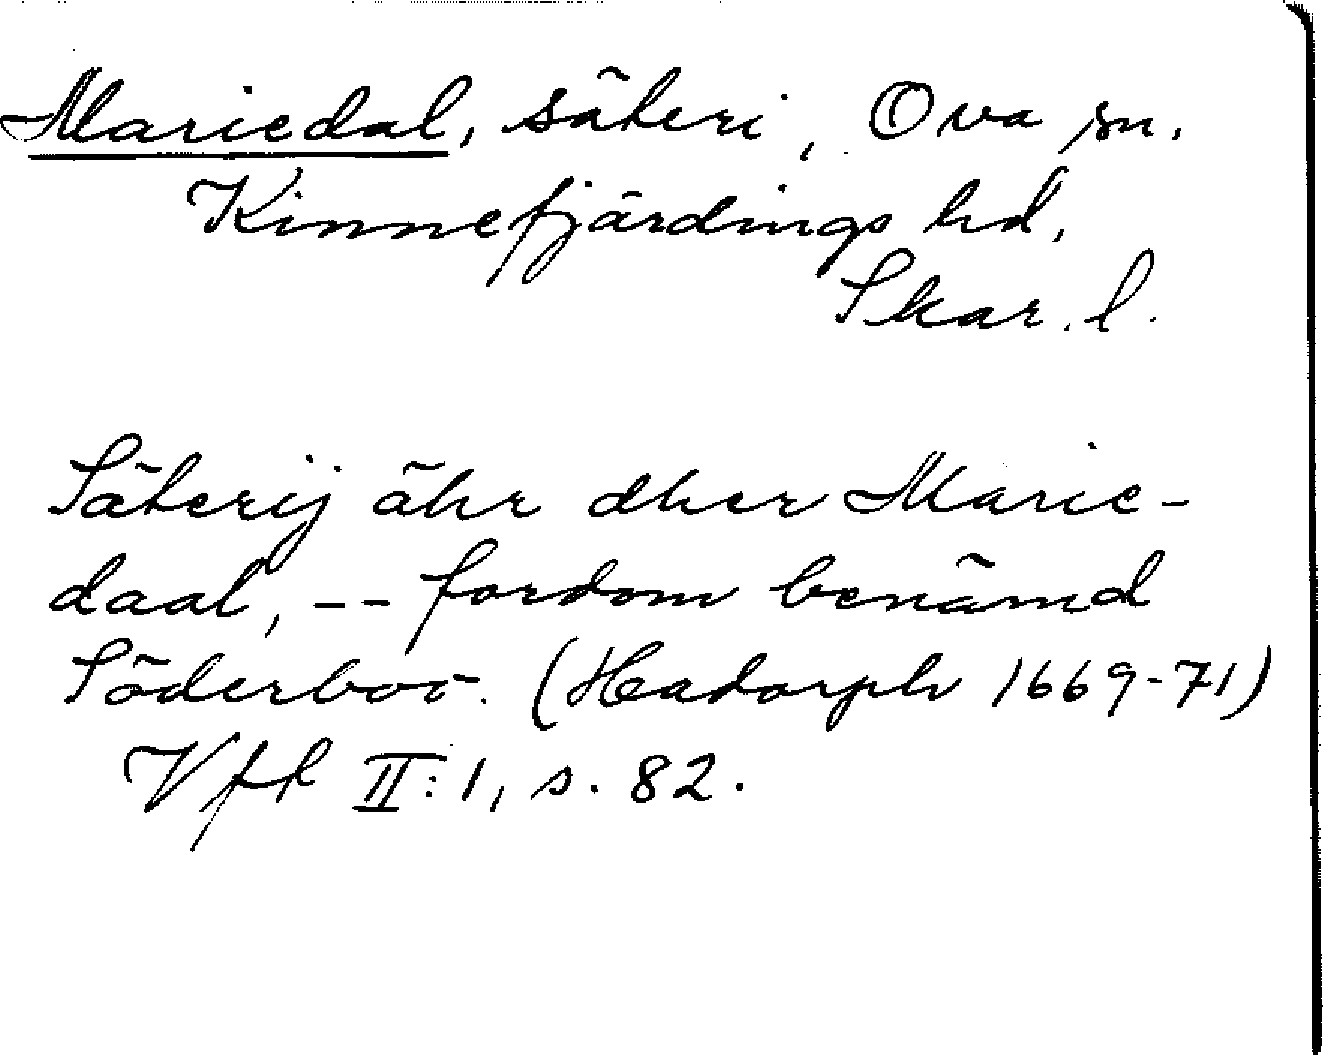 Mariedal, säteri, Ova sn.
Kinnefjärdings hd,
Skar. l.
Säterij ähr dher Marie-
daal, -- fordom benämd
Söderboo. (Hadorph 1669-71)
Vfl II:1, s. 82.